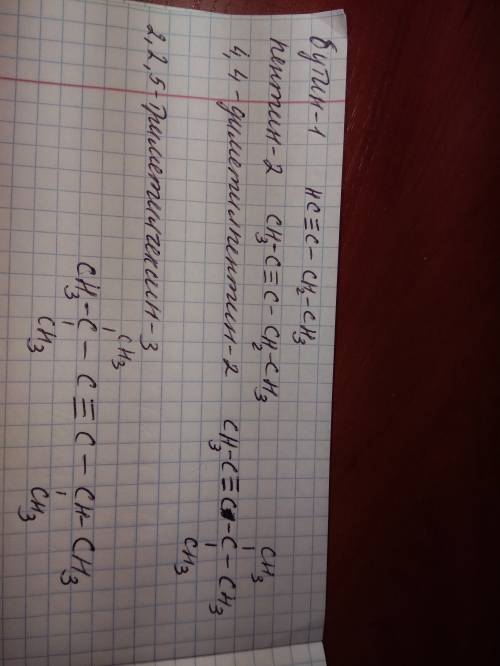 бутин-1 HC≡C-CH₂-CH₃
пентин-2 CH₃-C≡C-CH₂-CH₃
4,4-диметилпентин-2 CH₃-C≡C-C-CH₃
CH₃
CH₃
2,2,5-триметилгексин-3
CH₃
CH₃-C-C≡C-CH-CH₃
CH₃ CH₃